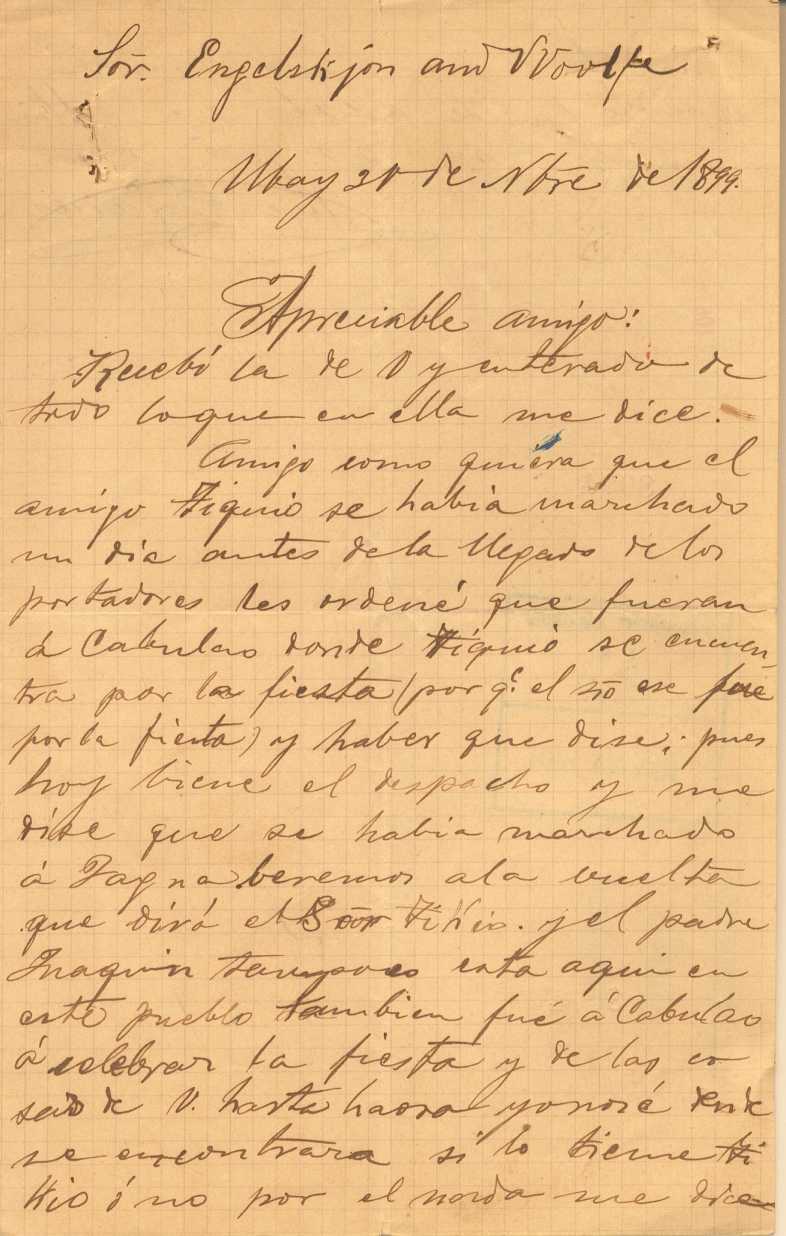 Sōr. Engelskjon and Woolfe
Ubay 20 de Nbre de 1899.
Apreciable amigo:
Recibí la de V y enterado de
todo loque en ella me dice.
Amigo como quiera que el
amigo Tiquio se había marchado
un dia antes dela llegada delos
portadores les ordené que fueran
á Cabulao donde Tiquio se encuen-
tra por la fiesta (por q.e el sōr ese fué
por la fiesta) y haber que dise; pues
hoy biene el despacho y me
dise que se habia marchado
á Jagna beremos ala vuelta
que dirá el Sōor Tikio. y el padre
Juaquin tampoco esta aqui en
este pueblo tambien fué á Cabulao
á celebrar la fiesta y de las co
sas de V. hasta haora yo nosé donde
se encontrara si lo tiene Ti
kio ó no por el nada me dice